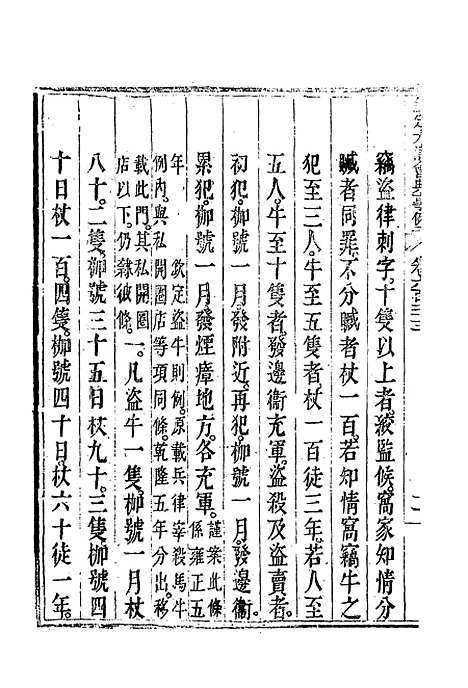 竊盜律刺字。十隻以上者。絞監候。窩家知情分
贓者同罪。不分贓者杖一百。若知情窩竊牛之
犯至三人。牛至五隻者。杖一百徒三年。若人至
五人。牛至十隻者。發邊衞充軍。盜殺及盜賣者。
初犯。枷號一月發附近。再犯。枷號一月。發邊衞。
累犯。枷號一月發煙瘴地方。各充軍。謹案此條係雍正五
年 欽定盜牛則例。原載兵律宰殺馬牛
例內。與私開圈店等項同條。乾隆五年分出。移
載此門。其私開圈店以下。仍隸彼條。一。凡盜牛一隻。枷號一月杖
八十。二隻。枷號三十五日杖九十。三隻。枷號四
十日杖一百。四隻。枷號四十日。杖六十徒一年。